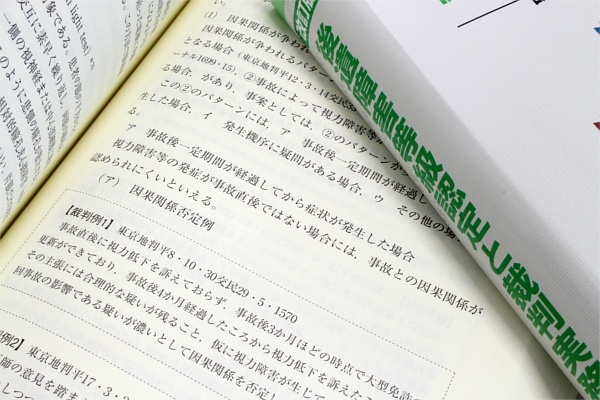 light (test) う)
に素早く繰り返し、瞳孔
象である。患者の瞳の
側の視神経または中
のように患側の瞳孔
相対的瞳孔求
(1) 因果関係が争わ
因果関係が争われるパターン
となる場合（東京地判平12・3・14交民33
ーナル1699・15）、②事故によって視力障害等
る場合、があり、事案としては、②のパターンが
この②のパターンには、ア 事故後一定期間が経過し
生した場合、イ 発生機序に疑問がある場合、ウ その他の場
る。
ア 事故後一定期間が経過してから症状が発生した場合
視力障害等の発症が事故直後ではない場合には、事故との因果関係が
認められにくいといえる。
（ア） 因果関係否定例
【裁判例1】東京地判平8・10・30交民29・5・1570
事故直後に視力低下を訴えておらず、事故後3か月ほどの時点で大型免許の
更新ができており、事故後4か月経過したころから視力低下を訴えたこ
その主張には合理的な疑いが残ること、仮に視力障害が生じて
回事故の影響である疑いが濃いとして因果関係を否定し
例2】東京地判平17・3・3
師の意見を踏ま
後遺障害等級認定と裁判実務